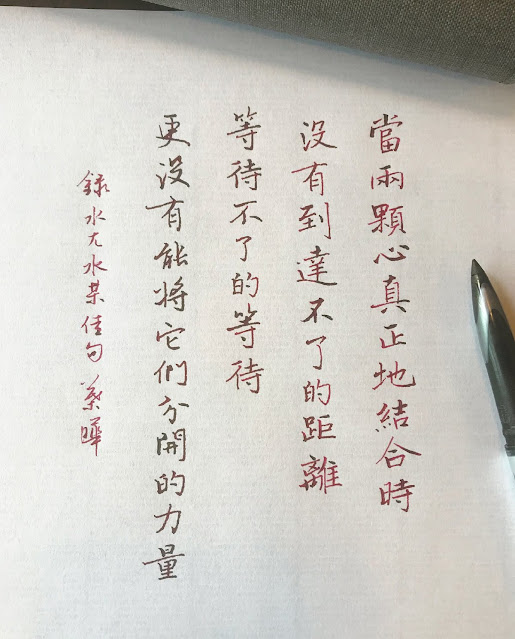 當兩顆心真正地結合時
没有到達不了的距離
等待不了的等待
更没有能將它們分開的力量
錄水尢水某佳句 蔡曄